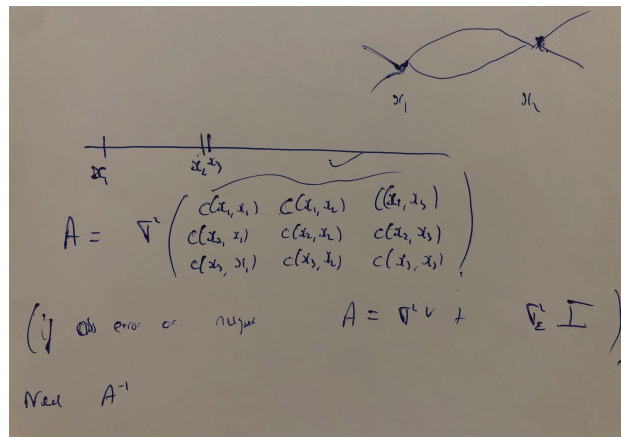 x₁ x₂
x₁ x₂ x₃
A = σ² ( c(x₁, x₁) c(x₁, x₂) c(x₁, x₃)
c(x₂, x₁) c(x₂, x₂) c(x₂, x₃)
c(x₃, x₁) c(x₃, x₂) c(x₃, x₃) )
(if obs error or nugget A = σ² V + σ_ε² I )
Need A⁻¹